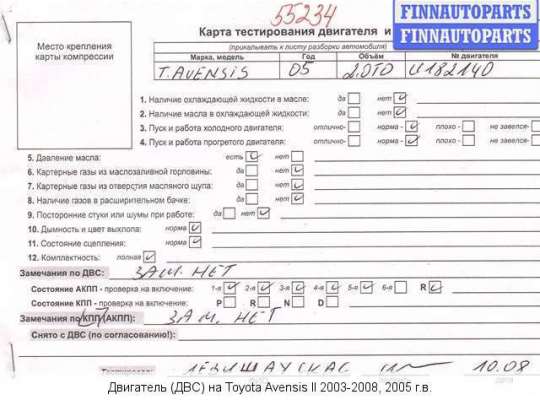 55234
FINNAUTOPARTS
FINNAUTOPARTS
Место крепления
карты компрессии
Карта тестирования двигателя и
(прикалывать к листу разборки автомобиля)
Марка, модель Год Объём № двигателя
T. AVENSIS 05 2.0TD U182140
1. Наличие охлаждающей жидкости в масле: да нет
2. Наличие масла в охлаждающей жидкости: да нет
3. Пуск и работа холодного двигателя: отлично- норма - плохо - не завелся-
4. Пуск и работа прогретого двигателя: отлично- норма - плохо - не завелся-
5. Давление масла: есть нет
6. Картерные газы из маслозаливной горловины: да нет
7. Картерные газы из отверстия масляного щупа: да нет
8. Наличие газов в расширительном бачке: да нет
9. Посторонние стуки или шумы при работе: да нет
10. Дымность и цвет выхлопа: норма
11. Состояние сцепления: норма
12. Комплектность: полная
Замечания по ДВС: ЗАМ. НЕТ
Состояние АКПП - проверка на включение: 1-я 2-я 3-я 4-я 5-я 6-я R
Состояние КПП - проверка на включение: P R N D
Замечания по КПП (АКПП): ЗАМ. НЕТ
Снято с ДВС (по согласованию!):
10.08
Двигатель (ДВС) на Toyota Avensis II 2003-2008, 2005 г.в.